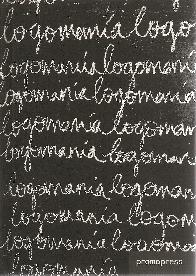 logomanía logo
logomanía logoman
ogomanía logomaní
logomanía logoman
logomanía logoman
logomanía logoman
logomanía logom
logomanía logoma
promopress